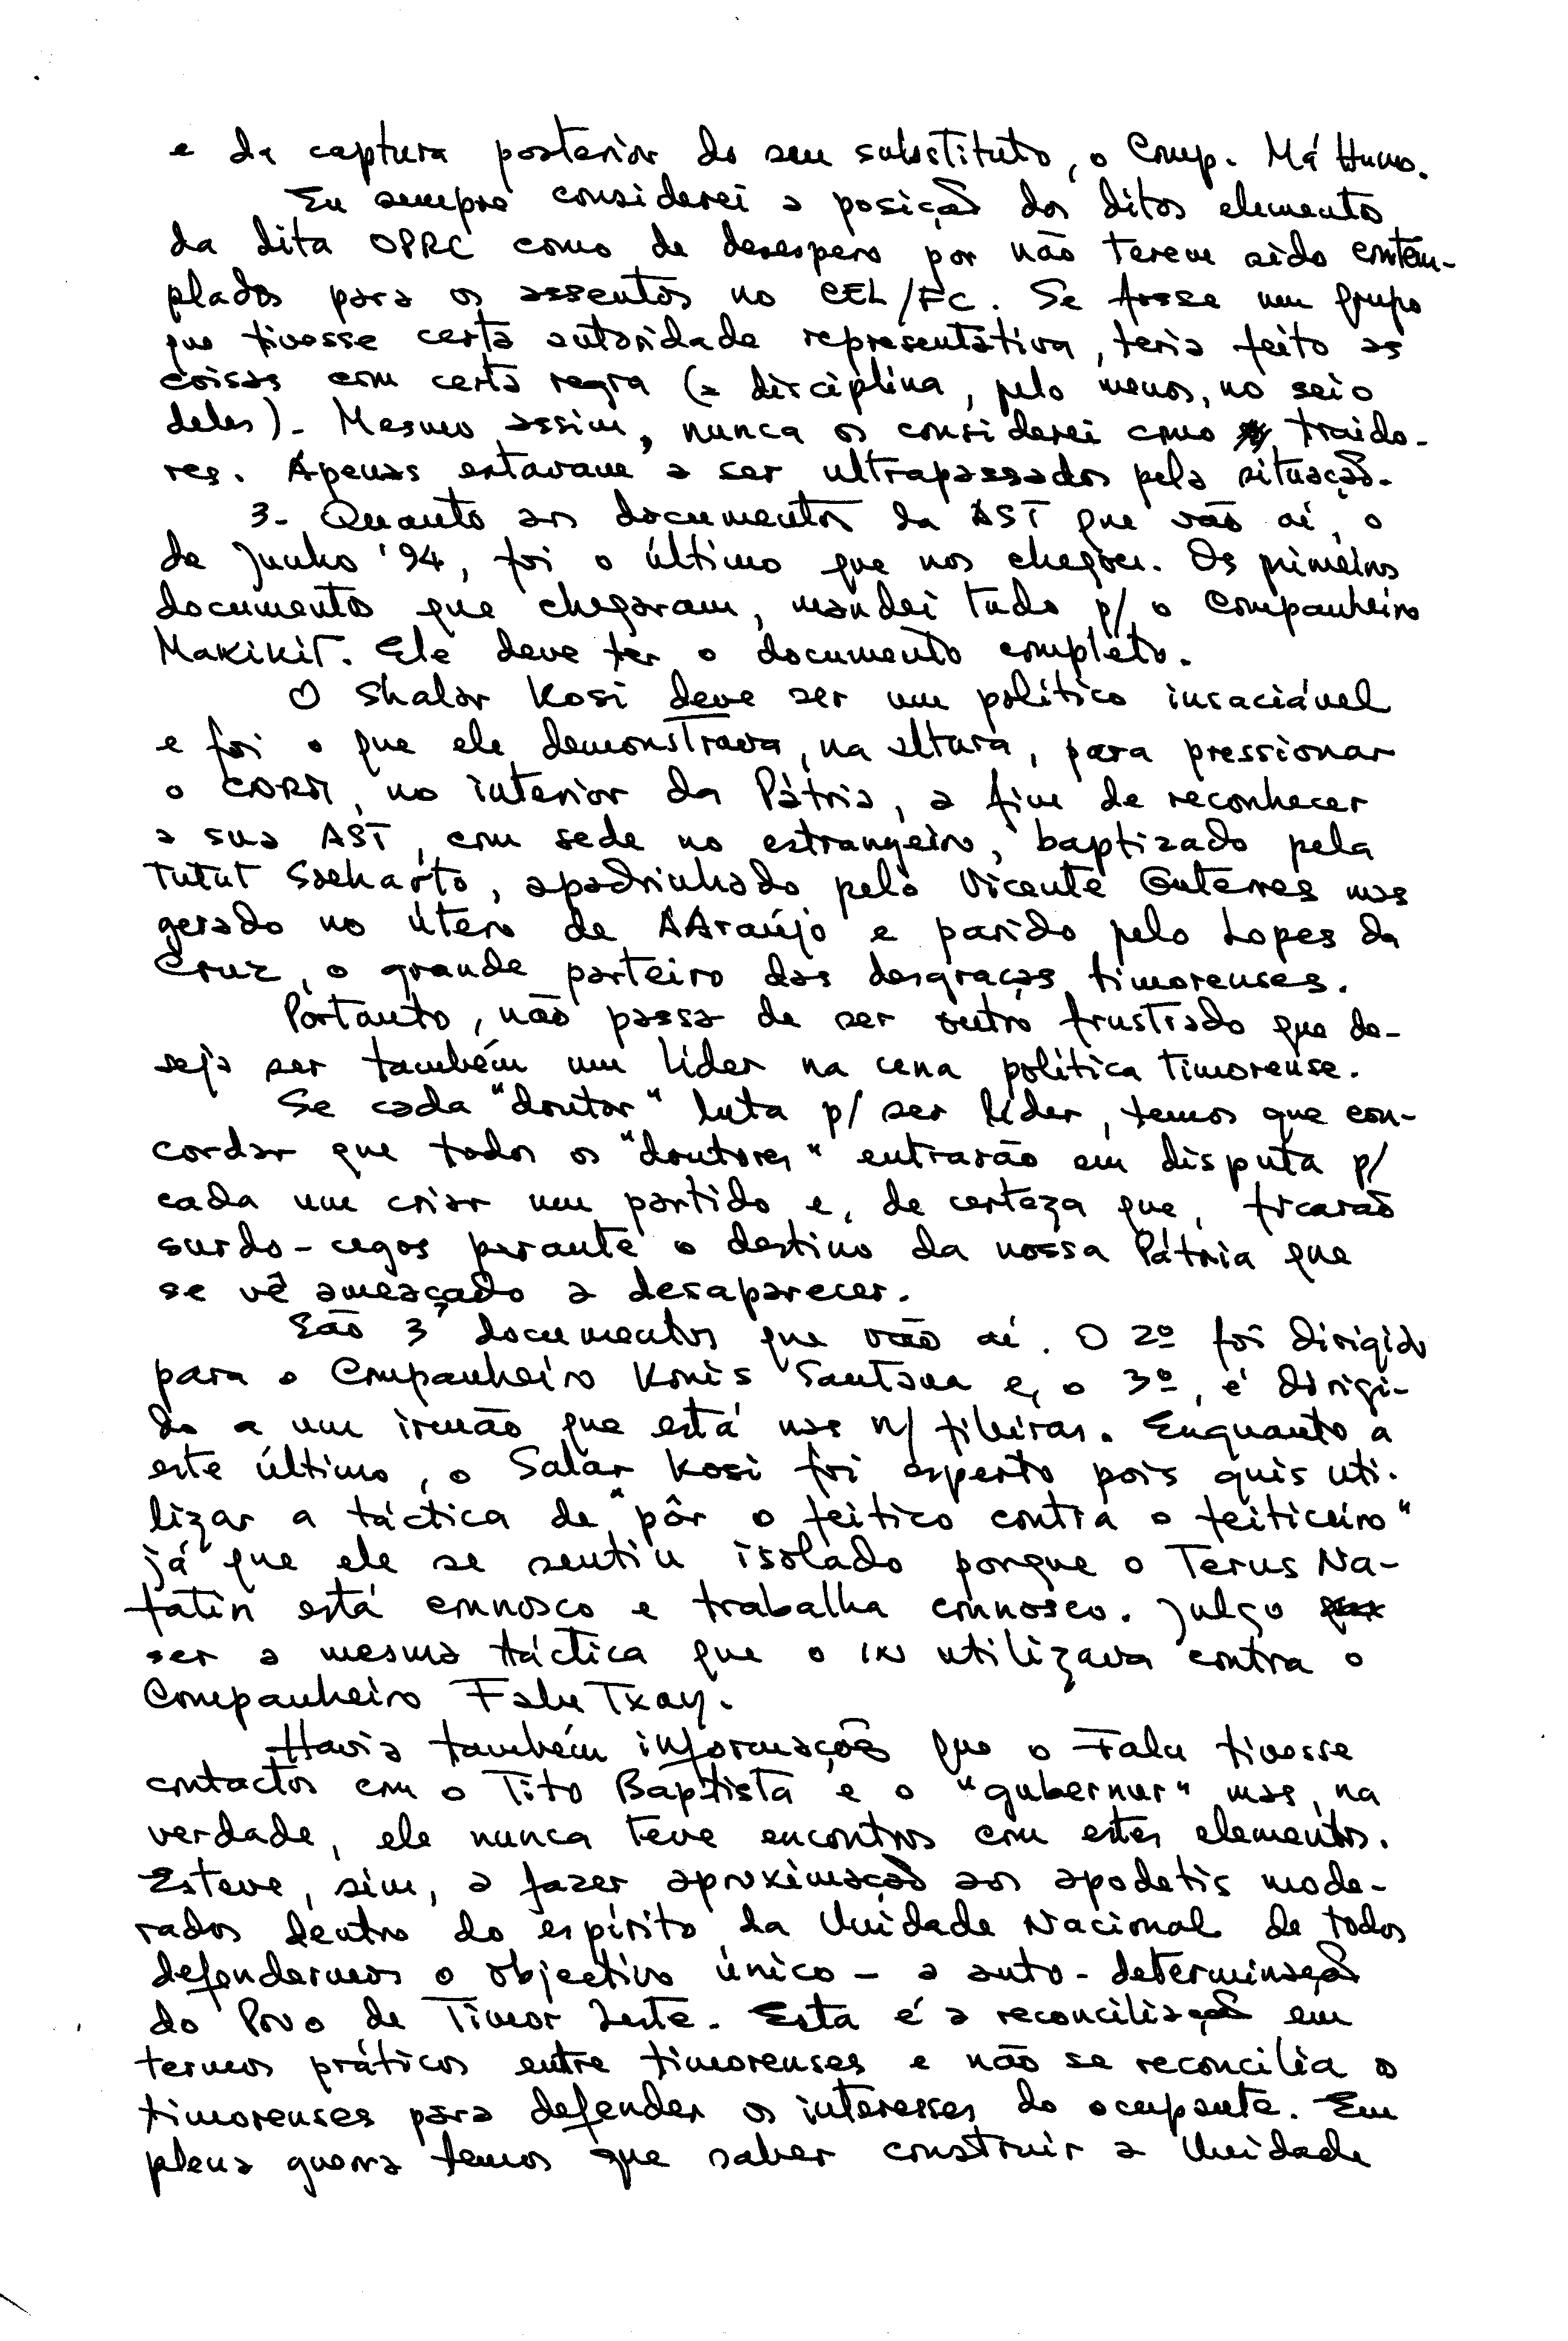 e da captura posterior do seu substituto, o Comp. Má Huno.
Eu sempre considerei a posição dos ditos elementos
da dita OPRC como de desespero por não terem sido contem-
plados para os assentos no CEL/FC. Se fosse um grupo
que tivesse certa autoridade representativa, teria feito as
coisas com certa regra (a disciplina, pelo menos, no seio
deles). Mesmo assim, nunca os considerei como traido-
res. Apenas estavam a ser ultrapassados pela situação.
3- Quanto aos documentos da AST que vão aí, o
de Junho '94, foi o último que nos chegou. Os primeiros
documentos que chegaram, mandei tudo p/ o Companheiro
Makikit. Ele deve ter o documento completo.
O Shalar Kosi deve ser um político insaciável
e foi o que ele demonstrava, na altura, para pressionar
o CNRM, no interior da Pátria, a fim de reconhecer
a sua AST, com sede no estrangeiro, baptizado pela
Tutut Soeharto, apadrinhado pelo Vicente Guterres mas
gerado no útero de AAraújo e parido pelo Lopes da
Cruz, o grande parteiro das desgraças timorenses.
Portanto, não passa de ser outro frustrado que de-
seja ser também um líder na cena política timorense.
Se cada "doutor" luta p/ ser líder, temos que con-
cordar que todos os "doutores" entrarão em disputa p/
cada um criar um partido e, de certeza que, ficarão
surdo-cegos perante o destino da nossa Pátria que
se vê ameaçado a desaparecer.
São 3 documentos que vão aí. O 2º foi dirigido
para o Companheiro Konis Santana e, o 3º, é dirigi-
do a um irmão que está nas n/ fileiras. Enquanto a
este último, o Salar Kosi foi esperto pois quis uti-
lizar a táctica de "pôr o feitiço contra o feiticeiro"
já que ele se sentiu isolado porque o Terus Na-
fatin está connosco e trabalha connosco. Julgo
ser a mesma táctica que o IN utilizava contra o
Companheiro Falu Txay.
Havia também informações que o Falu tivesse
contactos com o Tito Baptista e o "gubernur" mas, na
verdade, ele nunca teve encontros com estes elementos.
Esteve, sim, a fazer aproximação aos apodetis mode-
rados dentro do espírito da Unidade Nacional de todos
defendermos o objectivo único - a auto-determinação
do Povo de Timor Leste. Esta é a reconciliação em
termos práticos entre timorenses e não se reconcilia os
timorenses para defender os interesses do ocupante. Em
plena guerra temos que saber construir a Unidade